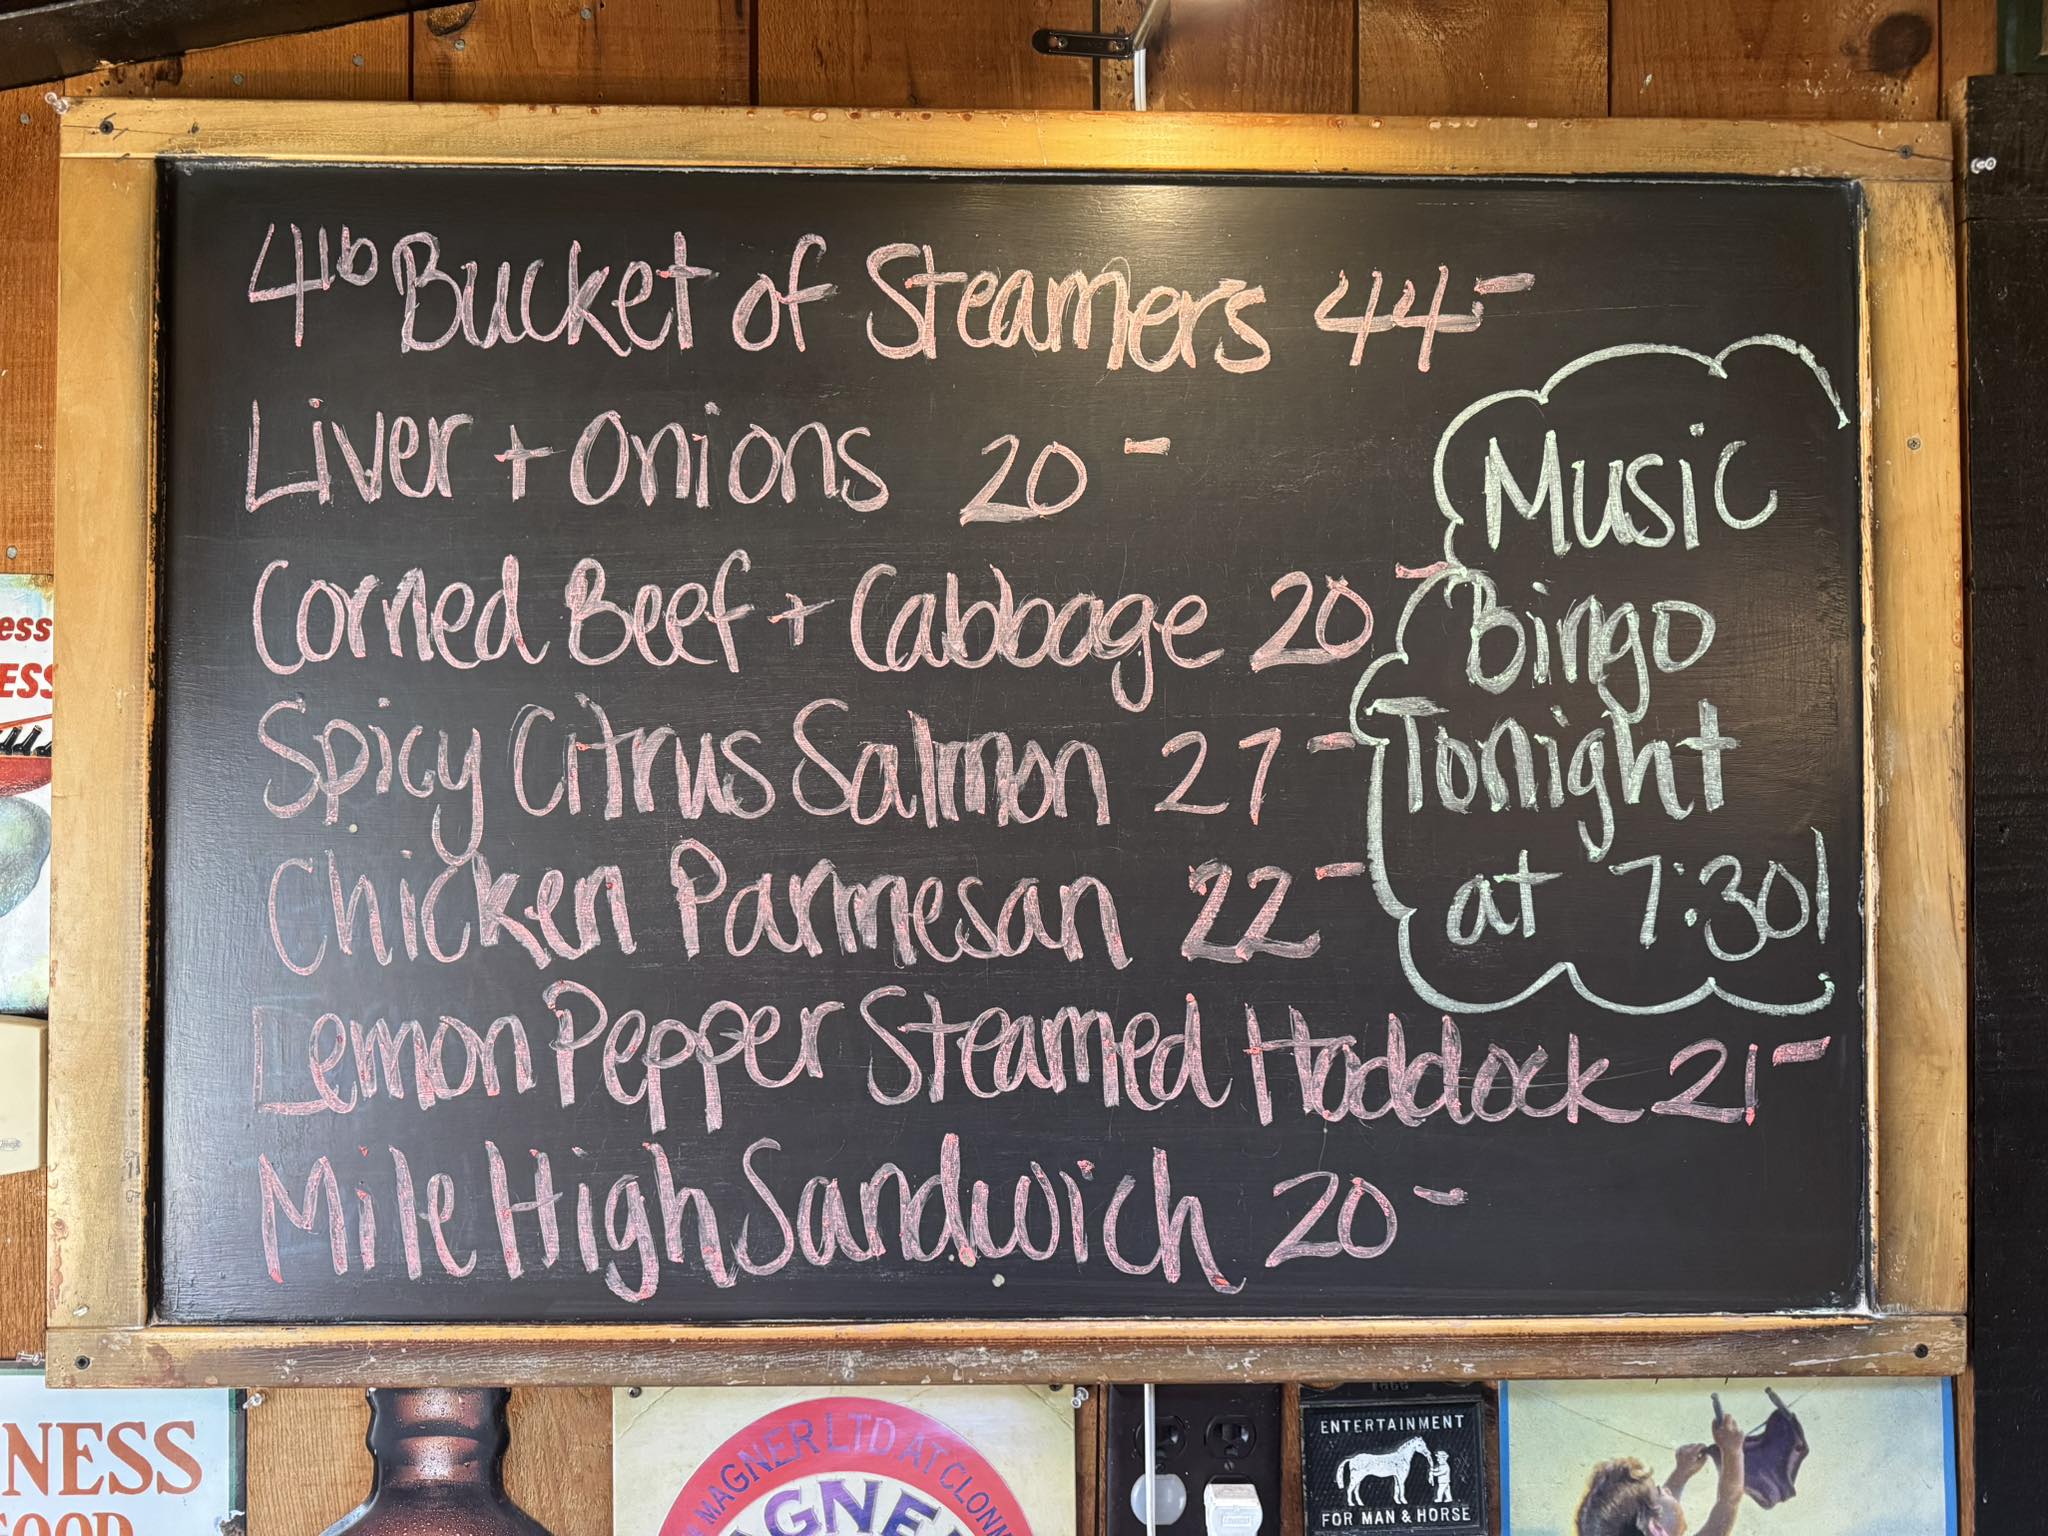 4lb Bucket of Steamers 44-
Liver + Onions 20-
Corned Beef + Cabbage 20-
Spicy Citrus Salmon 27-
Chicken Parmesan 22-
Lemon Pepper Steamed Haddock 21-
Mile High Sandwich 20-
Music
Bingo
Tonight
at 7:30!
ess
ESS
NESS
GOOD
MAGNER LTD AT CLONM
AGNE
ENTERTAINMENT
FOR MAN & HORSE